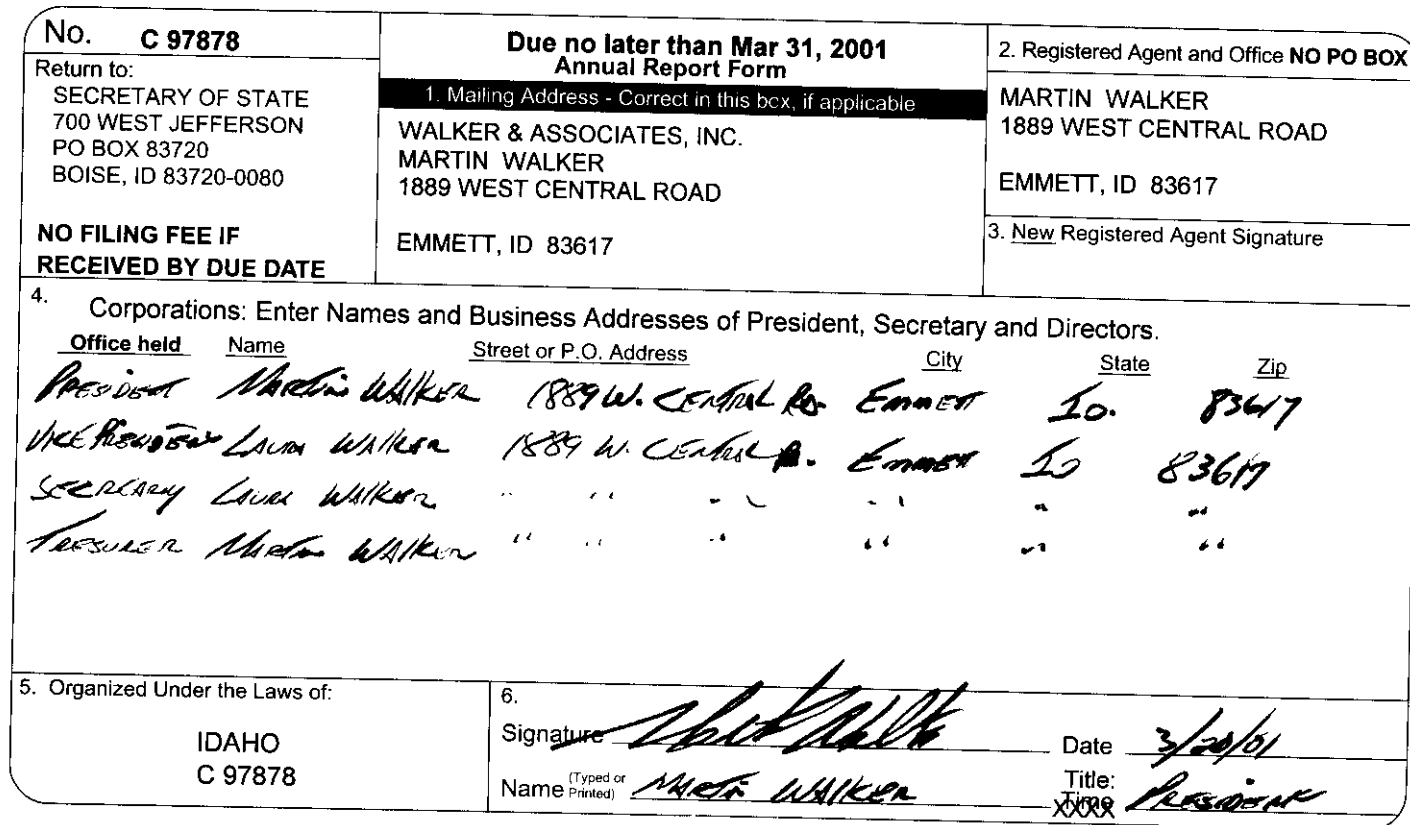 No. C 97878
Return to:
SECRETARY OF STATE
700 WEST JEFFERSON
PO BOX 83720
BOISE, ID 83720-0080
NO FILING FEE IF
RECEIVED BY DUE DATE
Due no later than Mar 31, 2001
Annual Report Form
1. Mailing Address - Correct in this box, if applicable
WALKER & ASSOCIATES, INC.
MARTIN WALKER
1889 WEST CENTRAL ROAD
EMMETT, ID 83617
2. Registered Agent and Office NO PO BOX
MARTIN WALKER
1889 WEST CENTRAL ROAD
EMMETT, ID 83617
3. New Registered Agent Signature
4. Corporations: Enter Names and Business Addresses of President, Secretary and Directors.
Office held Name Street or P.O. Address City State Zip
PRESIDENT MARTIN WALKER 1889 W. CENTRAL RD. EMMETT ID. 83617
VICE PRESIDENT LAURA WALKER 1889 W. CENTRAL R. EMMETT ID 83617
SECRETARY LAURA WALKER " " " " " "
TRESURER MARTIN WALKER " " " " " "
5. Organized Under the Laws of:
IDAHO
C 97878
6.
Signature Date 3/20/01
Name (Typed or Printed) MARTIN WALKER Title: PRESIDENT